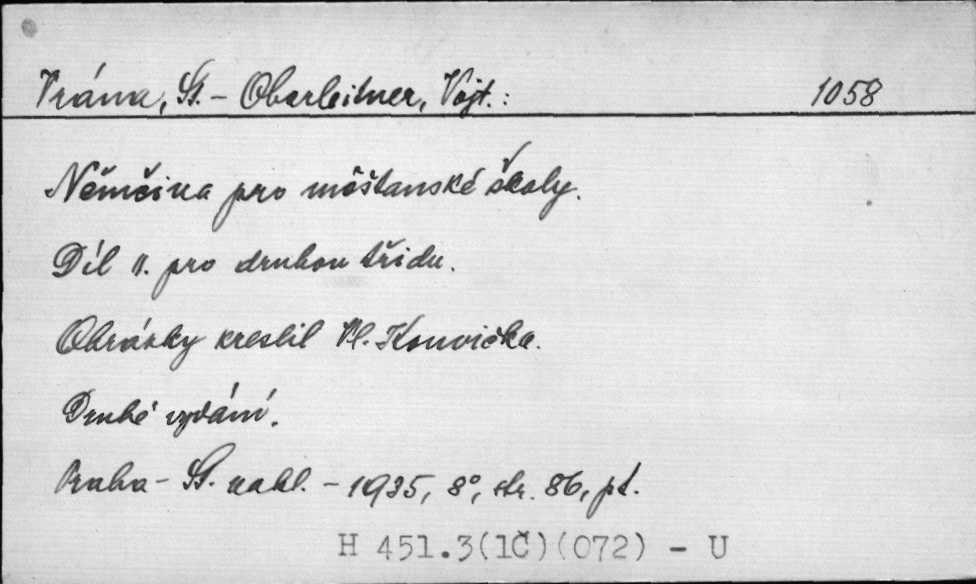 Vrána, St. – Oberleitner, Vojt.: 1058
Němčina pro měšťanské školy.
Díl II. pro druhou třídu.
Obrázky kreslil Vl. Konvička.
Druhé vydání.
Praha – St. nakl. – 1935, 8°, str. 86, pt.
H 451.3(1Č)(072) - U